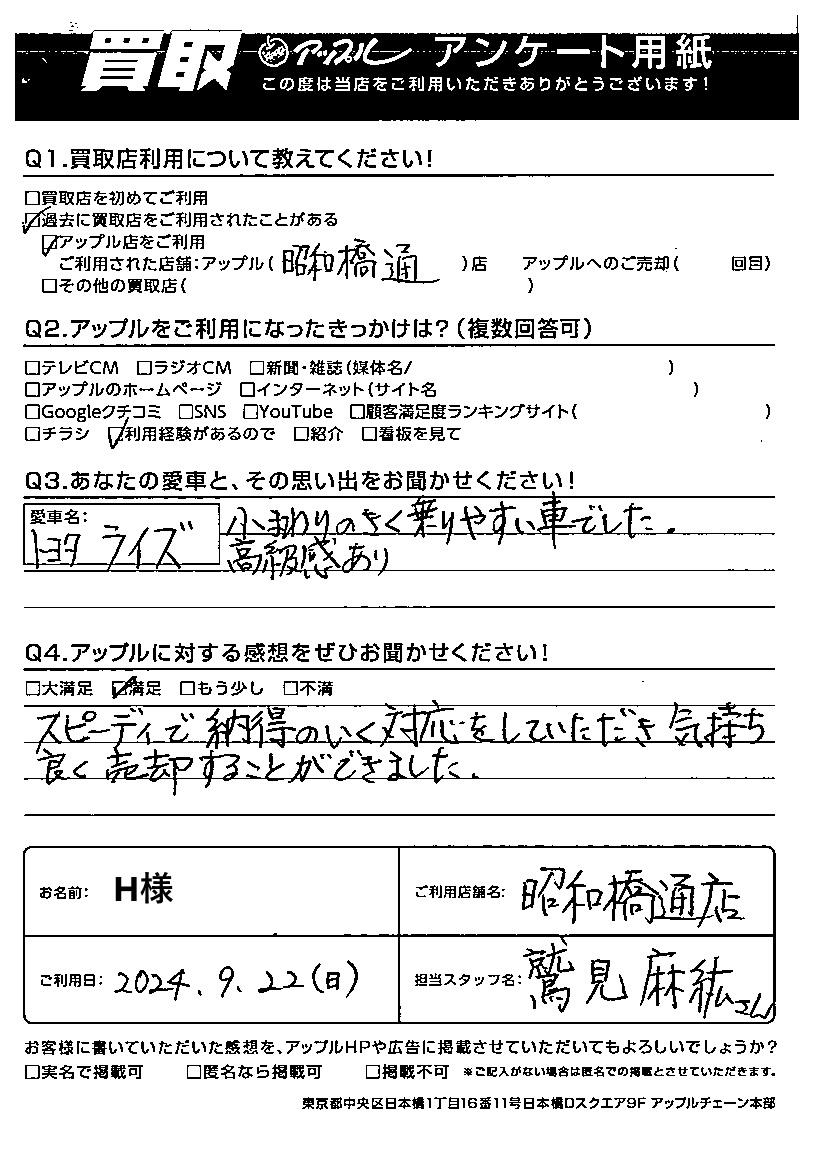 買取 アップル アンケート用紙
この度は当店をご利用いただきありがとうございます！
Q1.買取店利用について教えてください！
□買取店を初めてご利用
☑過去に買取店をご利用されたことがある
☑アップル店をご利用
ご利用された店舗：アップル（ 昭和橋通 ）店 アップルへのご売却（ 回目）
□その他の買取店（ ）
Q2.アップルをご利用になったきっかけは？（複数回答可）
□テレビCM □ラジオCM □新聞・雑誌（媒体名/ ）
□アップルのホームページ □インターネット（サイト名 ）
□Googleクチコミ □SNS □YouTube □顧客満足度ランキングサイト（ ）
□チラシ ☑利用経験があるので □紹介 □看板を見て
Q3.あなたの愛車と、その思い出をお聞かせください！
愛車名：
トヨタ ライズ
小まわりのきく乗りやすい車でした。
高級感あり
Q4.アップルに対する感想をぜひお聞かせください！
□大満足 ☑満足 □もう少し □不満
スピーディで納得のいく対応をしていただき気持ち
良く売却することができました。
お名前： H様
ご利用店舗名： 昭和橋通店
ご利用日： 2024.9.22(日)
担当スタッフ名： 鷲見麻紘さん
お客様に書いていただいた感想を、アップルHPや広告に掲載させていただいてもよろしいでしょうか？
□実名で掲載可 □匿名なら掲載可 □掲載不可 ※ご記入がない場合は匿名での掲載とさせていただきます。
東京都中央区日本橋1丁目16番11号日本橋Dスクエア9F アップルチェーン本部